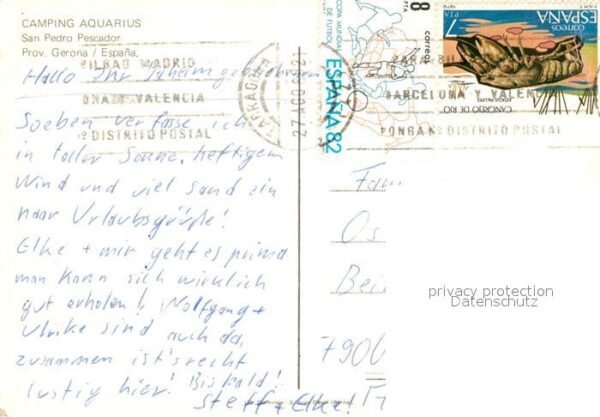 CAMPING AQUARIUS
San Pedro Pescador
Prov. Gerona / España,
BILBAO MADRID
VALENCIA
DISTRITO POSTAL
27 AGO
COPA MUNDIAL
DE FUTBOL
8
PTA
correos
ESPAÑA 82
7
PTA
CORREOS
ESPAÑA
CANGREJO DE RIO
BARCELONA Y VALENCIA
PONGA Nº DISTRITO POSTAL
Hallo Ihr Daheimgebliebenen
Soeben verfasse ich
in toller Sonne, heftigem
Wind und viel Sand ein
paar Urlaubsgrüße!
Elke + mir geht es prima
man kann sich wirklich
gut erholen! Wolfgang +
Ulrike sind auch da,
zusammen ist's recht
lustig hier! Bis bald!
Steff + Elke!
Fam
Os
Bei
790
privacy protection
Datenschutz